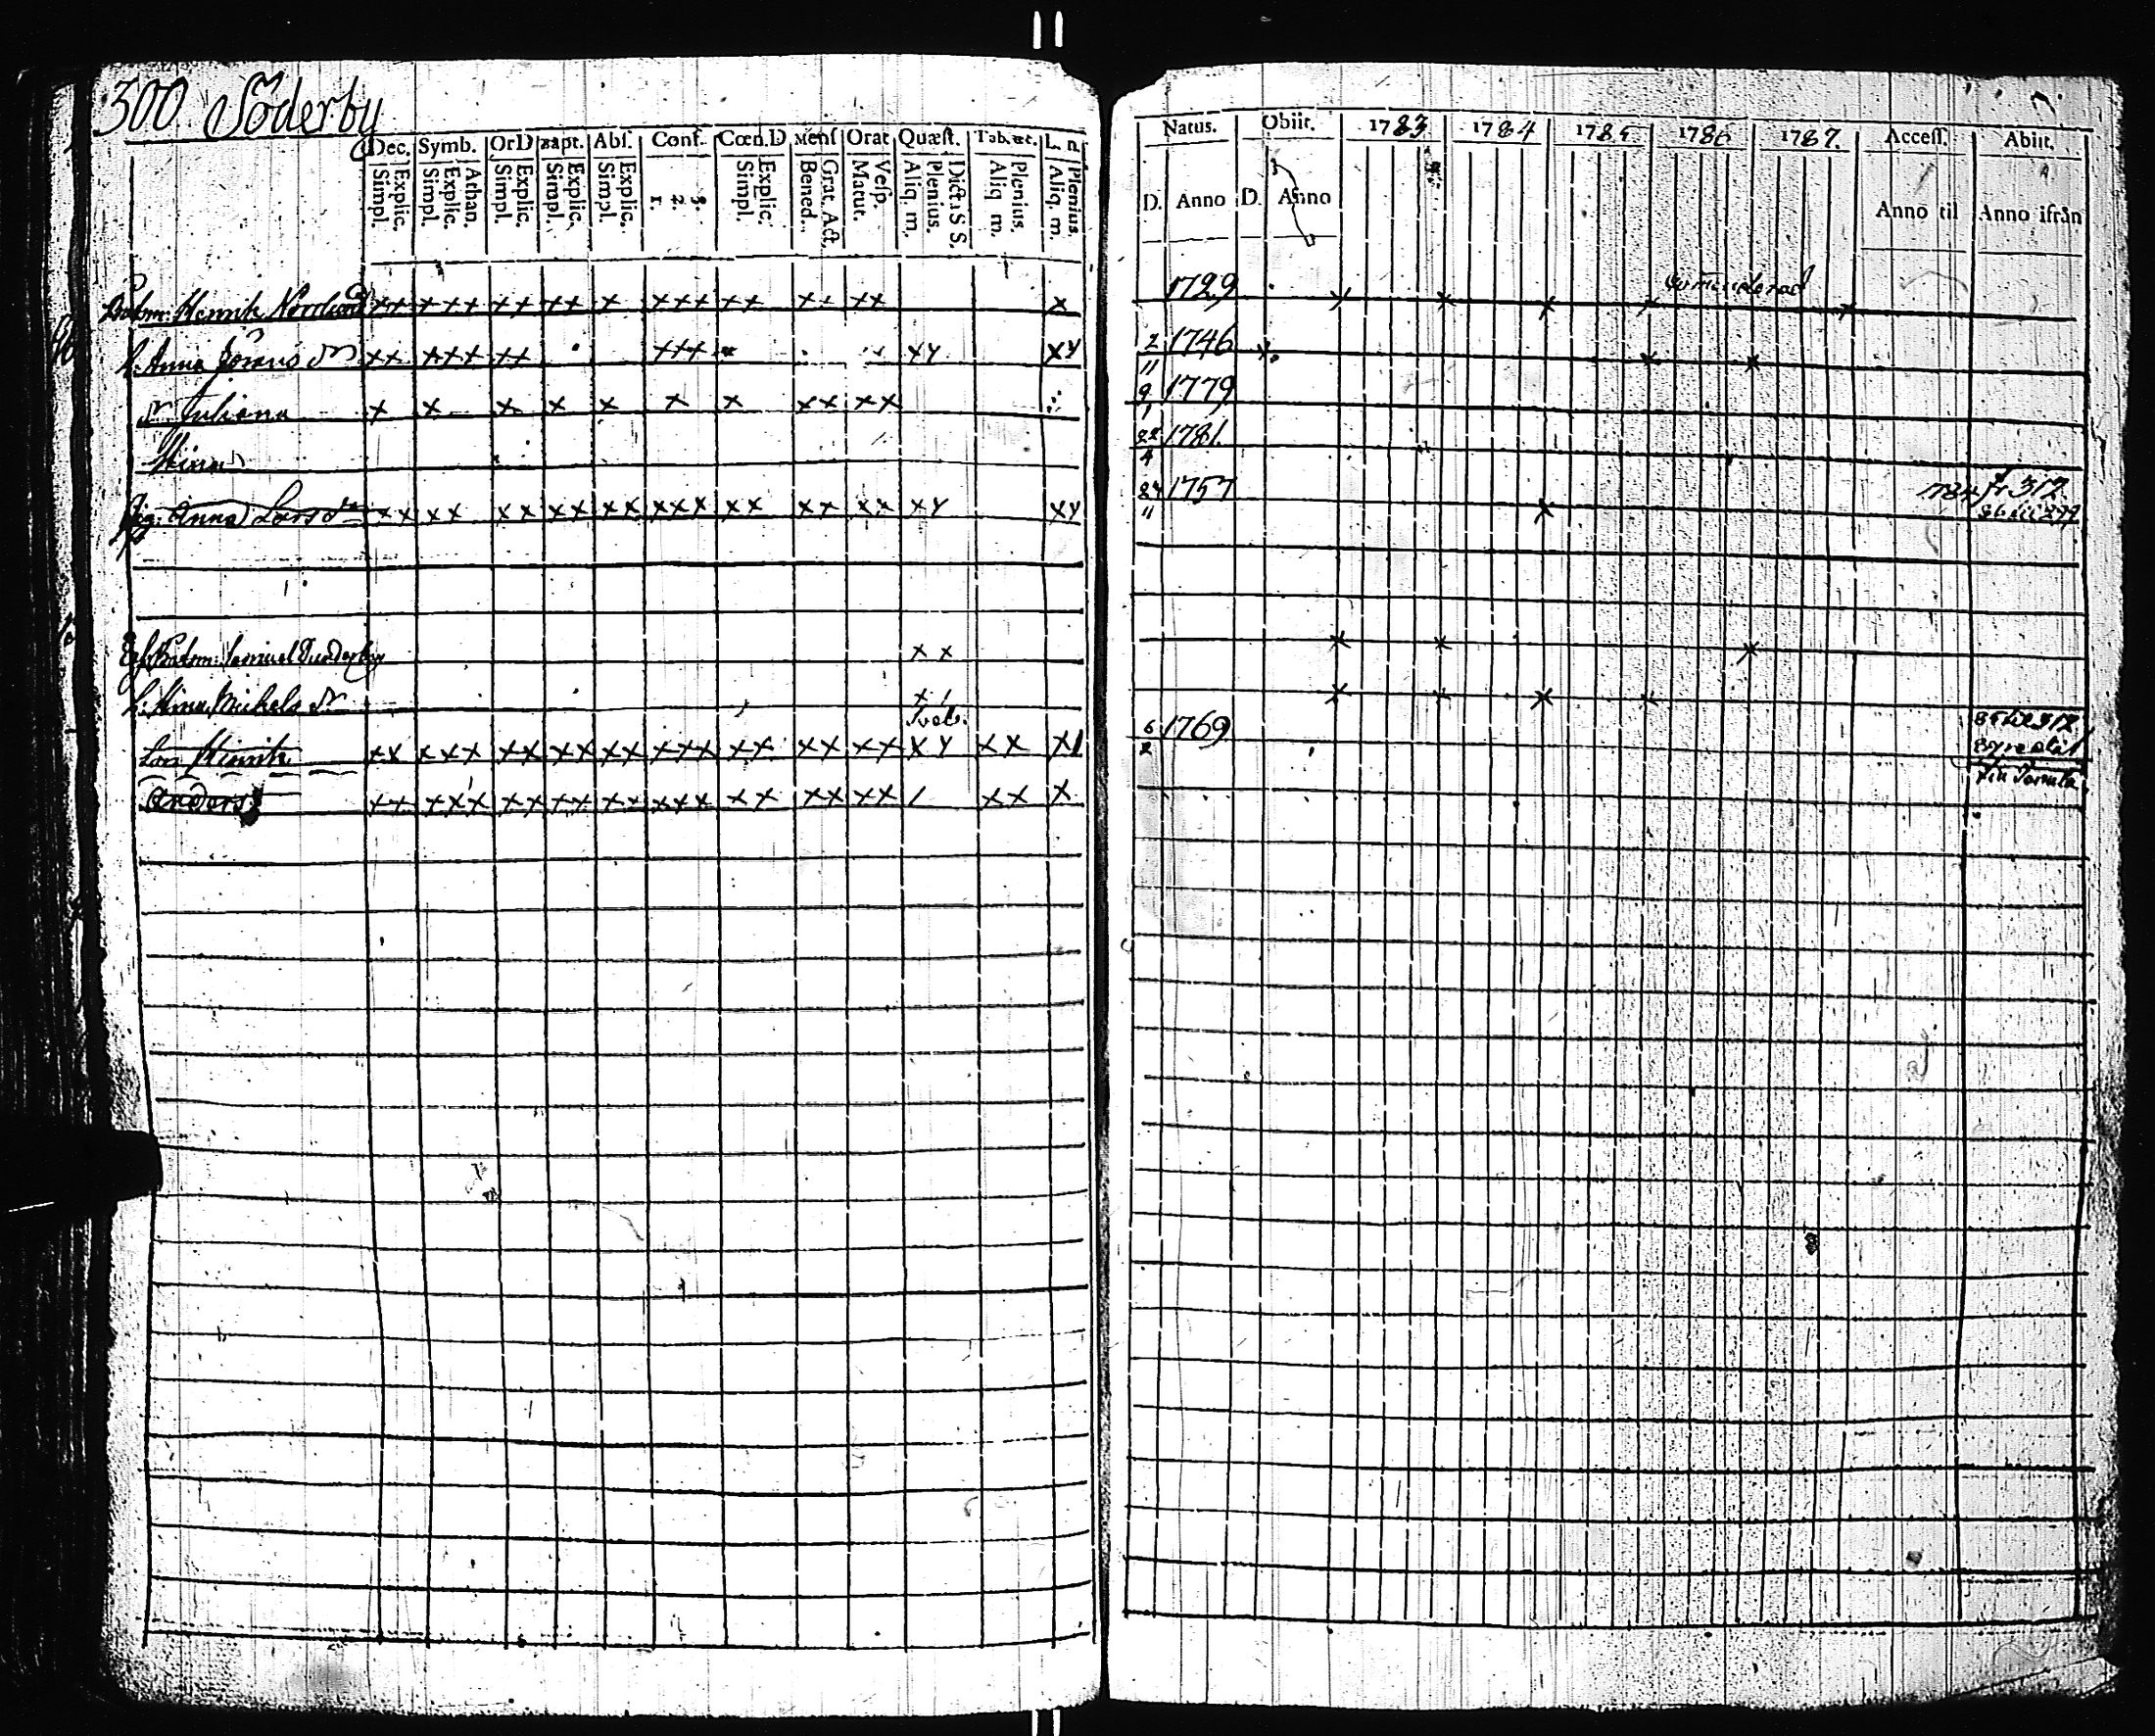 300 Söderby
Dec. Symb. OrD Bapt. Abs. Conf. Cœn.D Mens Orat Quæst. Tab.œc. L. n.
Explic. Simpl. Athan. Explic. Simpl. Explic. Simpl. Explic. Simpl. Explic. Simpl. 3. 2. 1. Explic. Simpl. Grat. Act. Bened. Vesp. Matut. Dicta S S. Plenius. Aliq. m. Plenius. Aliq m. Plenius Aliq. m.
Natus. Obiit. 1783 1784 1785 1786 1787. Access. Abiit.
D. Anno D. Anno Anno til Anno ifrån
Båtsm: Henrik Norlund xx xxx xx xx x xxx xx xx xx x 1729
h. Anna Görans dr xx xxx xx xxx xy xy 2/11 1746
dr Juliana x x x x x x x xx xx 9/1 1779
Stina 22/4 1781
Pig: Anna Lars dr xx xx xx xx xx xxx xx xx xx xy xy 24/11 1757 1784 fr 312
86 til 277
Båtsm: Samuel Suderby xx
h: Stina Michels dr
Son Henrik xx xxx xx xx xx xxx xx xx xx xy xx 6/2 1769 85 til 312
Anders xx xxx xx xx xx xxx xx xx xx / xx x